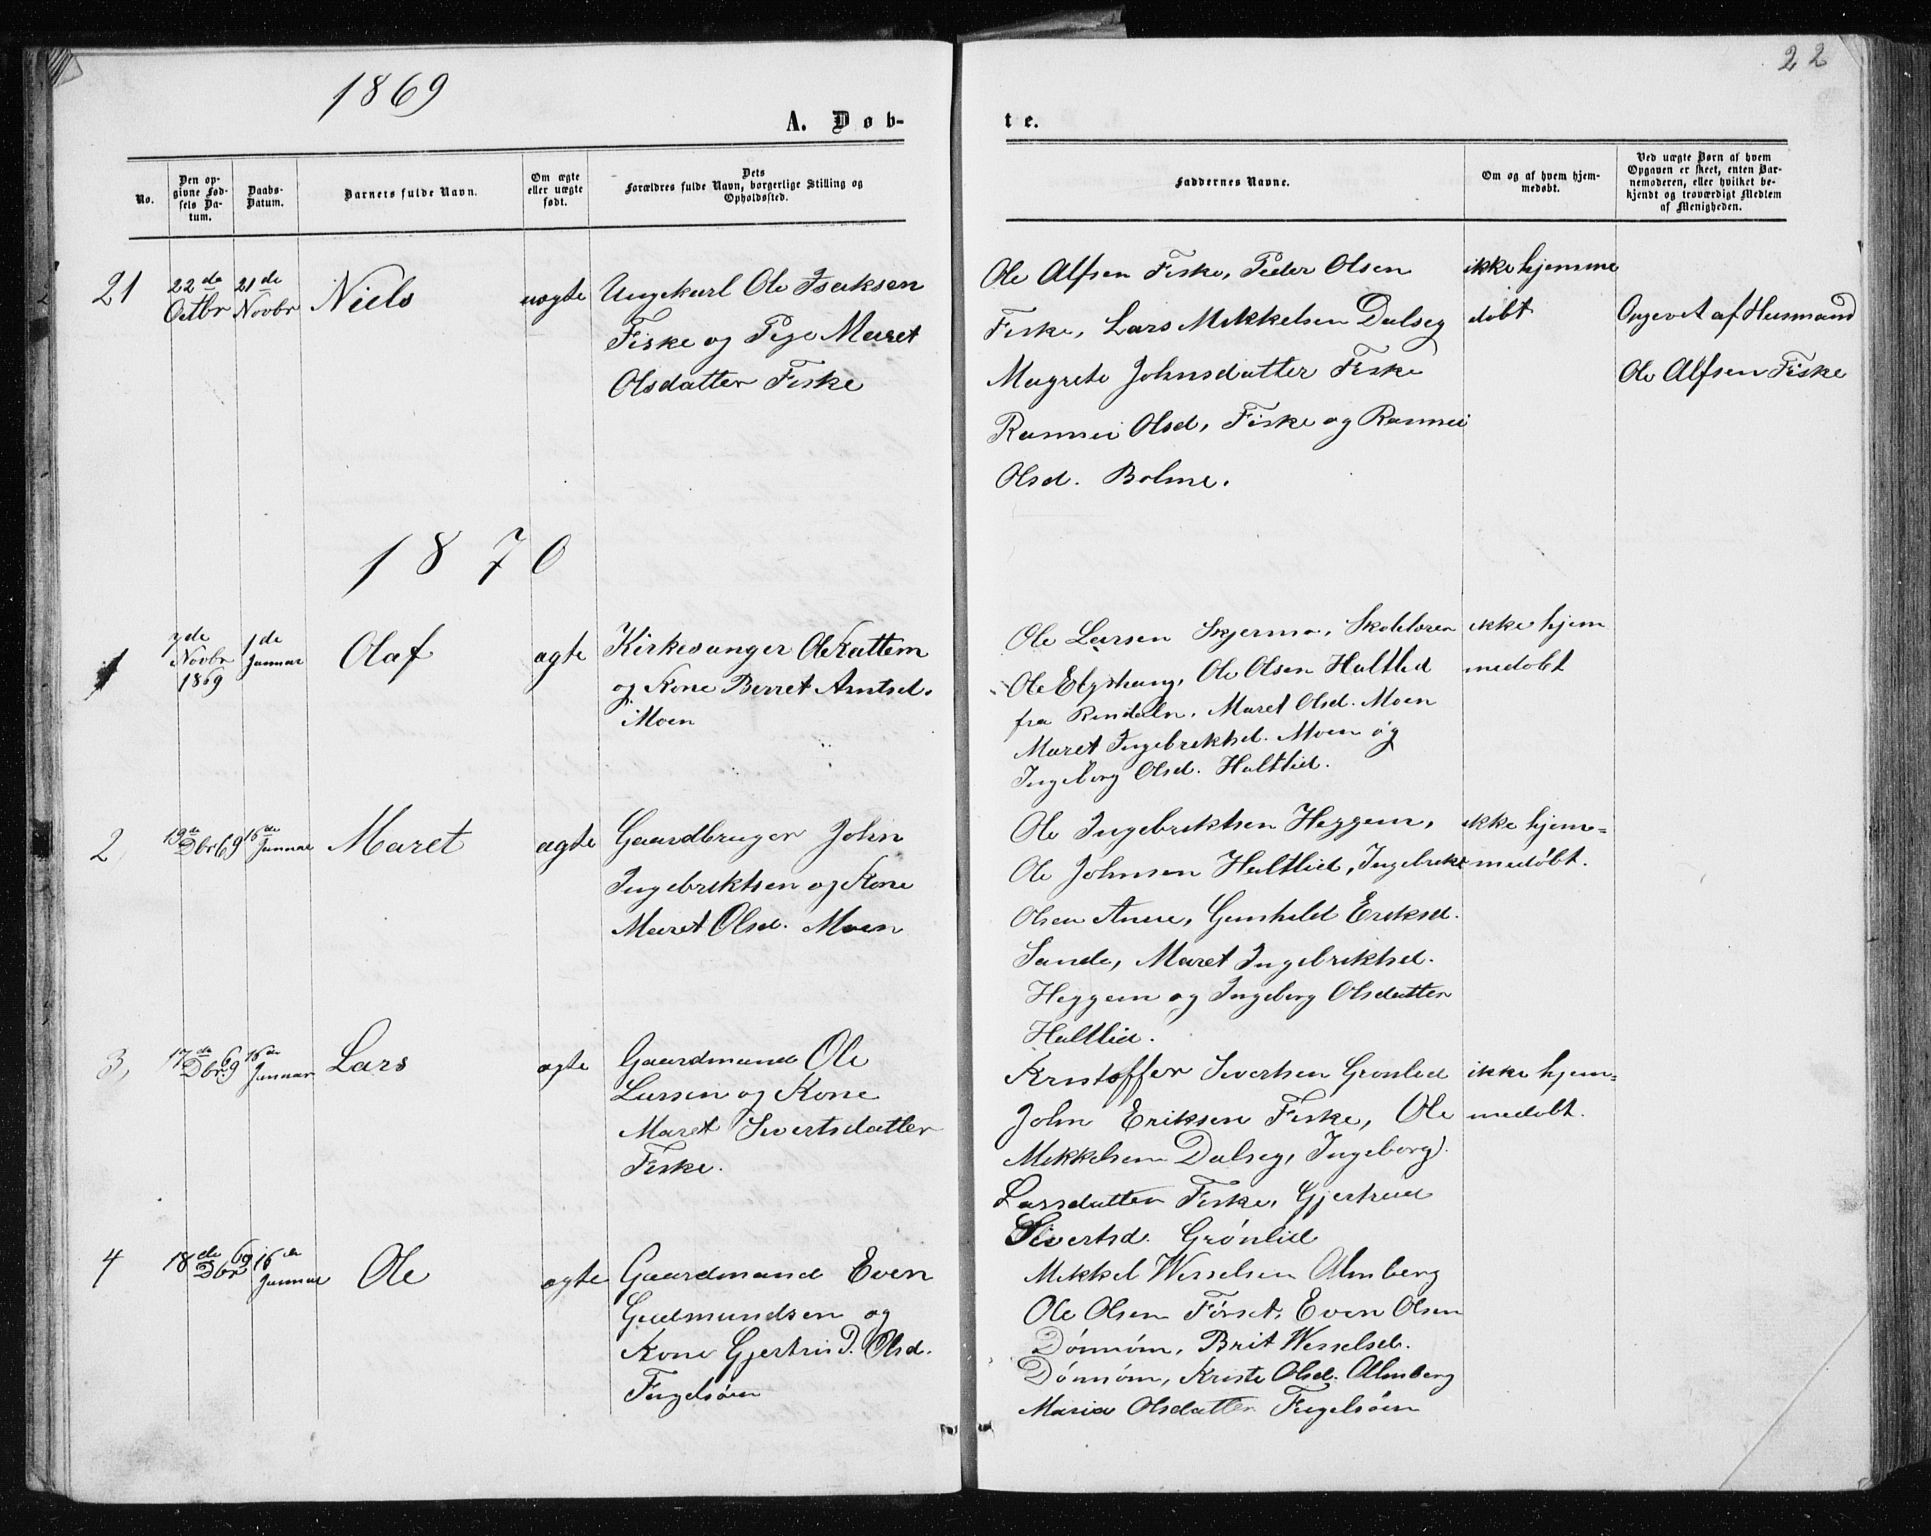 22
1869
A. Døb-
te.
No.
Den op-
givne Fød-
sels Da-
tum.
Daabs-
Datum.
Barnets fulde Navn.
Om ægte
eller uægte
født.
Dets
Forældres fulde Navn, borgerlige Stilling og
Opholdssted.
Faddernes Navne.
Om og af hvem hjem-
medøbt.
Ved uægte Børn af hvem
Opgaven er skeet, enten Bar-
nemoderen, eller hvilket be-
kjendt og troværdigt Medlem
af Menigheden.
21
22de
Octbr
21de
Novbr
Niels
uægte
Ungekarl Ole Isaksen
Fiske og Pige Maret
Olsdatter Fiske
Ole Alfsen Fiske, Peder Olsen
Fiske, Lars Mikkelsen Dalseg
Magrete Johnsdatter Fiske
Rannei Olsd. Fiske og Rannei
Olsd. Bolme.
ikke hjemme
døbt
Opgevet af Husmand
Ole Alfsen Fiske
1870
1
7de
Novbr
1869
1de
Januar
Olaf
ægte
Kirkesanger Ole Kattem
og Kone Berret Arntsd.
Moen
Ole Larsen Skjermo, Skolelærer
Ole Elgshaug, Ole Olsen Haltlid
fra Rindaln, Maret Olsd. Moen
Maret Ingebriktsd. Moen og
Ingeborg Olsd. Haltlid.
ikke hjem
medøbt
2,
19de
Dbr 69
16de
Januar
Maret
ægte
Gaardbruger John
Ingebriktsen og Kone
Maret Olsd. Moen
Ole Ingebriktsen Heggem,
Ole Johnsen Haltlid, Ingebrikt
Olsen Aune, Gunhild Eriksd.
Sande, Maret Ingebriktsd.
Heggem og Ingeborg Olsdatter
Haltlid.
ikke hjem=
medøbt.
3,
17de
Dbr. 69
16de
Januar
Lars
ægte
Gaardmand Ole
Larsen og Kone
Maret Sivertsdatter
Fiske.
Kristoffer Sivertsen Grønlid
John Eriksen Fiske, Ole
Mikkelsen Dalseg, Ingeborg
Larsdatter Fiske, Gjertrud
Sivertsd. Grønlid
ikke hjem=
medøbt.
4
18de
Dbr 69
16de
Januar
Ole
ægte
Gaardmand Even
Gudmundsen og
Kone Gjertrud Olsd.
Fugelsøen
Mikkel Wesselsen Almberg
Ole Olsen Førset, Even Olsen
Dønnøm, Brit Wesselsd.
Dønnøm, Kriste Olsd. Almberg
Maria Olsdatter Fugelsøen